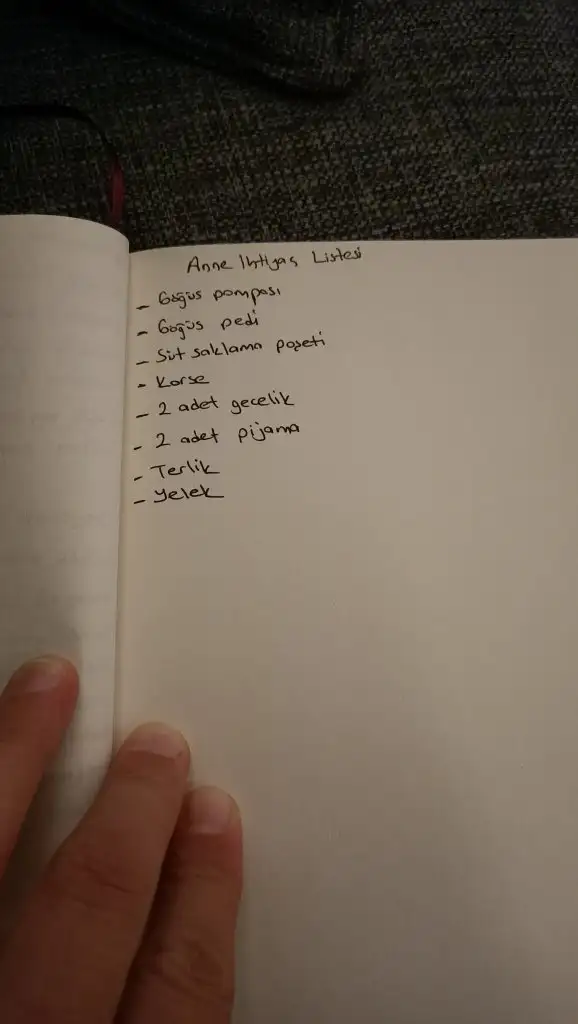 Anne İhtiyaç Listesi
- Göğüs pompası
- Göğüs pedi
- Süt saklama poşeti
- Korse
- 2 adet gecelik
- 2 adet pijama
- Terlik
- Yelek